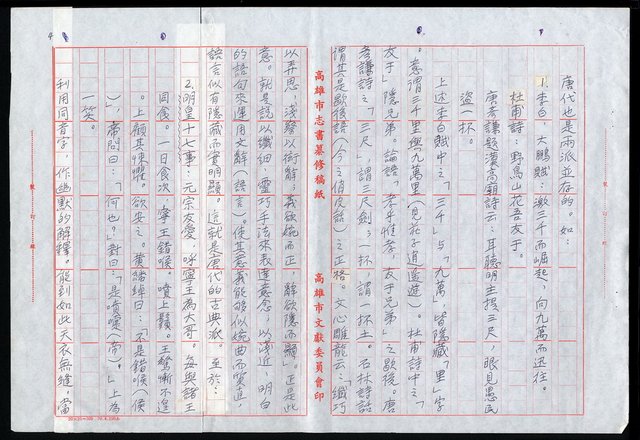 唐代也是兩派並存的。如：
1.李白　大鵬賦：激三千而崛起，向九萬而迅征。
杜甫詩：野鳥山花吾友于。
唐彥謙題漢高廟詩云：耳聽明主提三尺，眼見愚民
盜一杯。
上述李白賦中之「三千」与「九萬」皆隱藏「里」字
。意謂三千里與九萬里（見莊子逍遙遊）。杜甫詩中之「
友于」隱兄弟。論語「孝乎惟孝，友于兄弟」之歇後。唐
彥謙詩之「三尺」，謂三尺劍；一杯，謂一杯土。石林詩話
謂其是歇後語（今之俏皮話）之正格。文心雕龍云：「纖巧
高雄市志書纂修稿紙
高雄市文獻委員會印
以弄思，淺察以衒辭；義欲婉而正，辭欲隱而顯」。正是此
意。就是說以纖細，靈巧手法來表達意念，以淺近，明白
的語句來運用文辭（語言）。使其意義能够似婉曲而實直，
語言似有隱藏而實明顯。這就是唐代的古典派。至於：
2.明皇十七事：元宗友愛，呼寧王為大哥。每與諸王
同食。一日食次，寧王錯喉。噴上鬚。王驚慚不遑
。上顧其悚懼。欲安之。黃繙綽曰：「不是錯喉（侯
）」，帝問曰：「何也？」對曰：「是噴嚏（帝）。」上為
一笑。
利用同音字，作幽默的解釋。能到如此天衣無縫，當